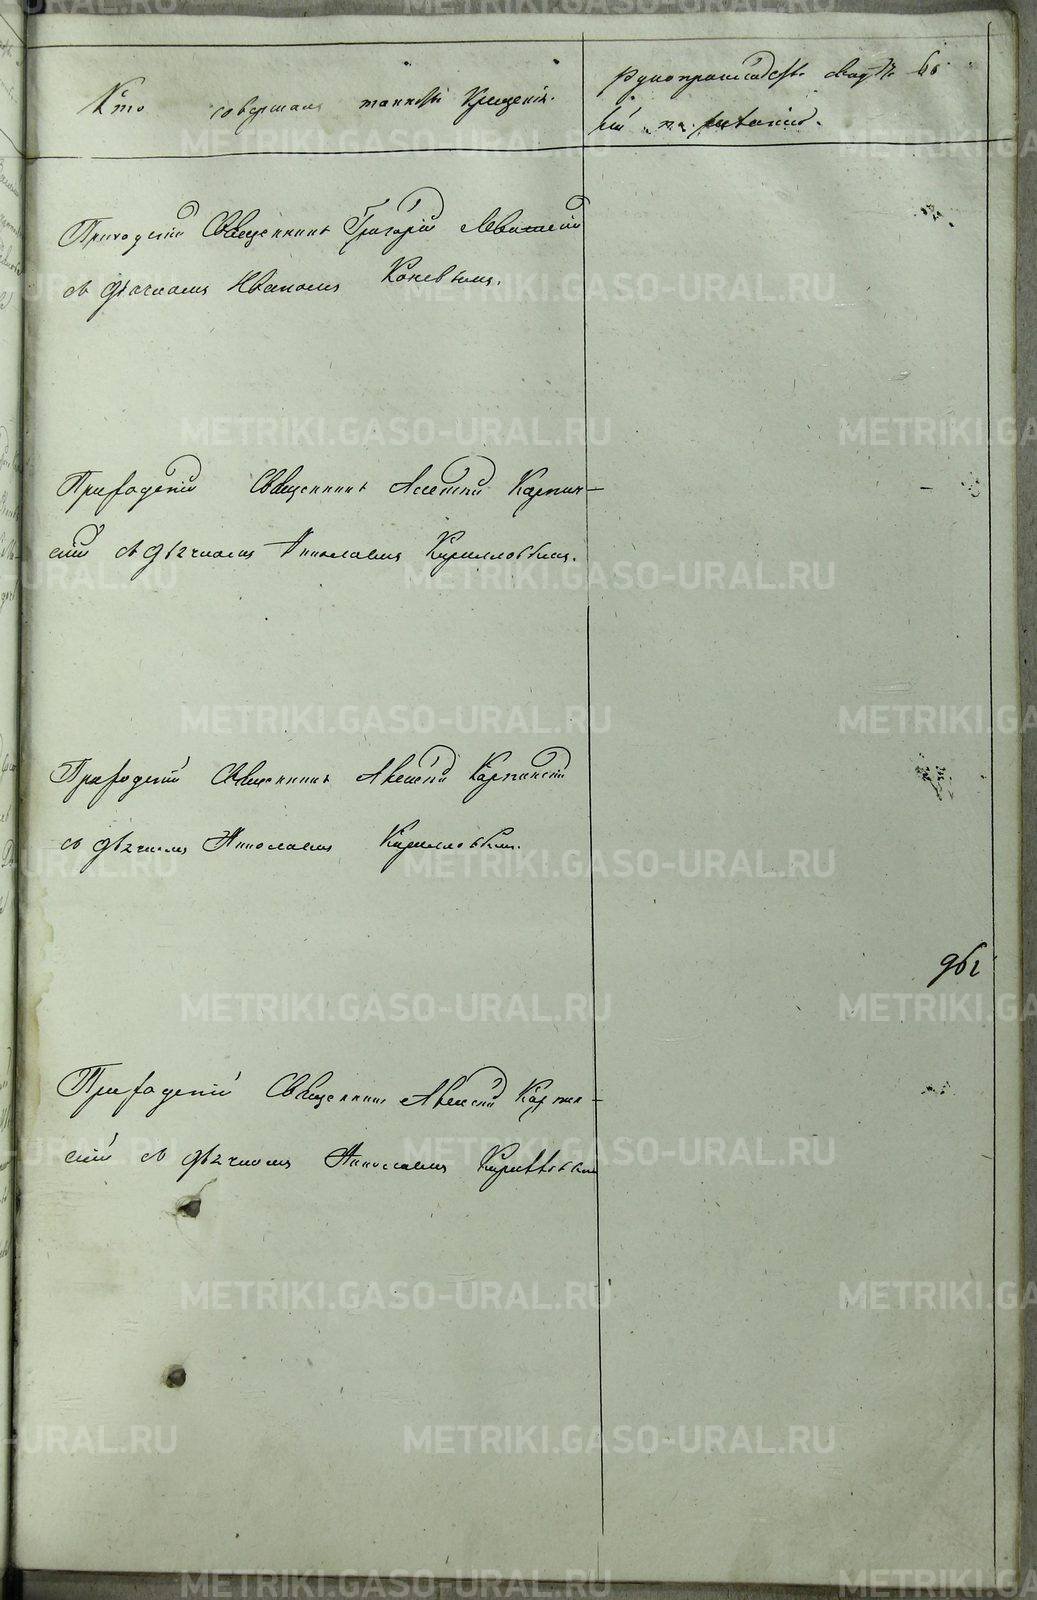 Кто совершалъ таинство Крещенія.
Рукоприкладство
Приходскій Священникъ Григорій
съ дьячкомъ Иваномъ Коневымъ.
Приходскій Священникъ Алексѣй Карпин-
скій съ дьячкомъ Николаемъ Кирилловымъ.
Приходскій Священникъ Алексѣй Карпинскій
съ дьячкомъ Николаемъ Кирилловым.
Приходскій Священникъ Алексѣй Карпин-
скій съ дьячкомъ Николаемъ Кирилловым
METRIKI.GASO-URAL.RU